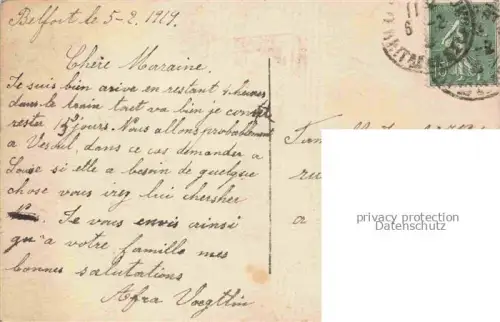 Belfort le 5-2. 1919.
Chère Maraine
Je suis bien arive en restant 4 heures
dans le train tout va bien je conte
rester 15 jours. Nous allons probablement
a Vesoul, dans ce cas demander a
Louise si elle a besoin de quelque
chose vous irez lui chersher
Je vous envis ainsi
qu'a votre famille mes
bonnes salutations
Afra Voegtlin
privacy protection
Datenschutz